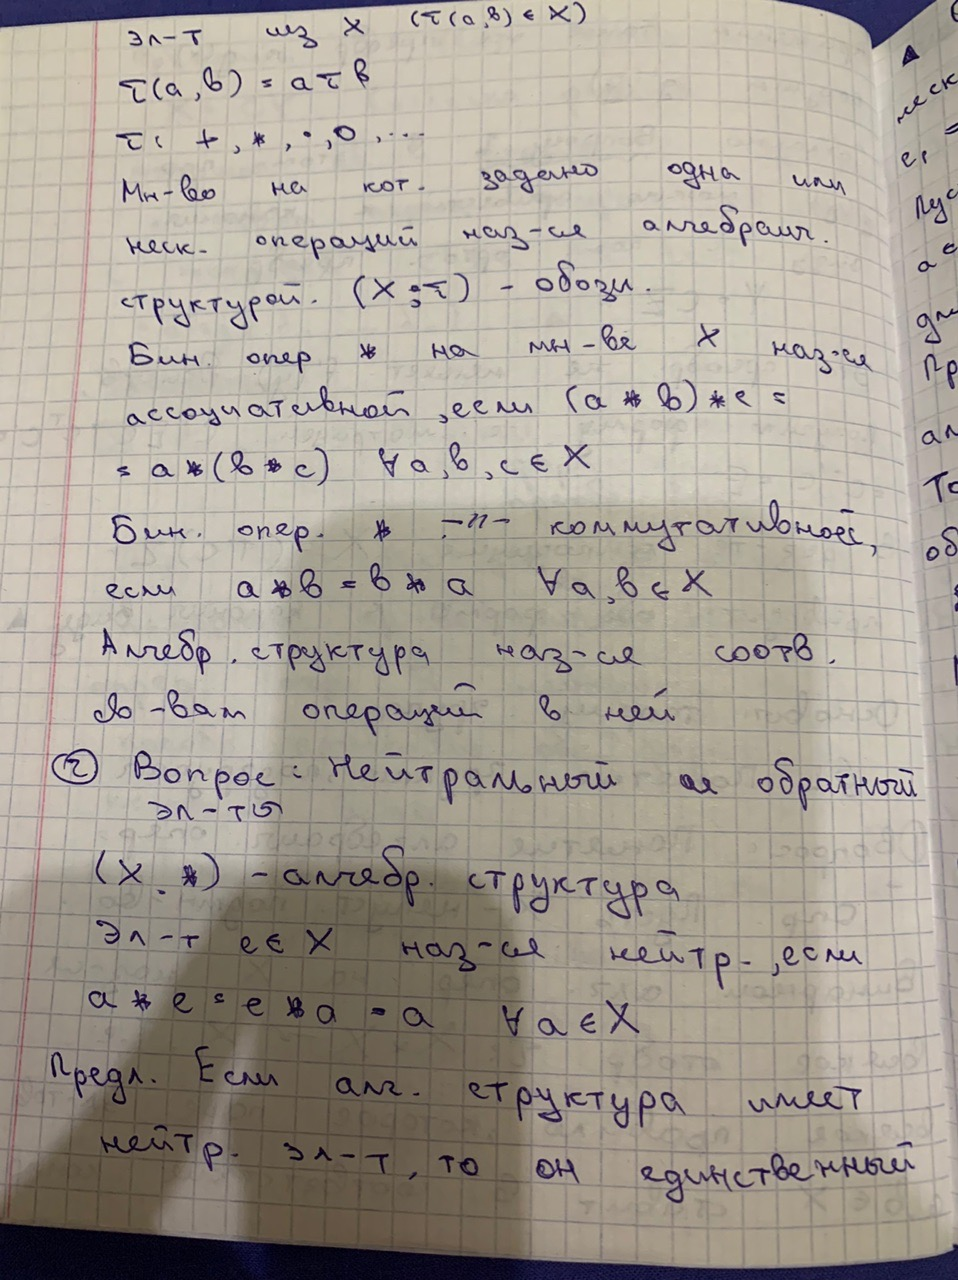 эл-т из X (τ(a,b) ∈ X)
τ(a,b) = a τ b
τ: +, *, ·, o, ...
Мн-во на кот. задано одна или
неск. операций наз-ся алгебраич.
структурой. (X; τ) - обозн.
Бин. опер * на мн-ве X наз-ся
ассоциативной, если (a * b) * c =
= a * (b * c) ∀ a, b, c ∈ X
Бин. опер. * -"- коммутативной,
если a * b = b * a ∀ a, b ∈ X
Алгебр. структура наз-ся соотв.
св-вам операций в ней
② Вопрос: Нейтральный и обратный
эл-ты
(X, *) - алгебр. структура
Эл-т e ∈ X наз-ся нейтр-, если
a * e = e * a = a ∀ a ∈ X
Предл. Если алг. структура имеет
нейтр. эл-т, то он единственный
▲
неск
=
Пус
a ∈
для
Пр
ал
То
об